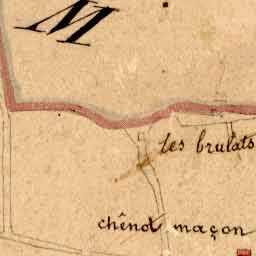 M
les brulats
chênot maçon